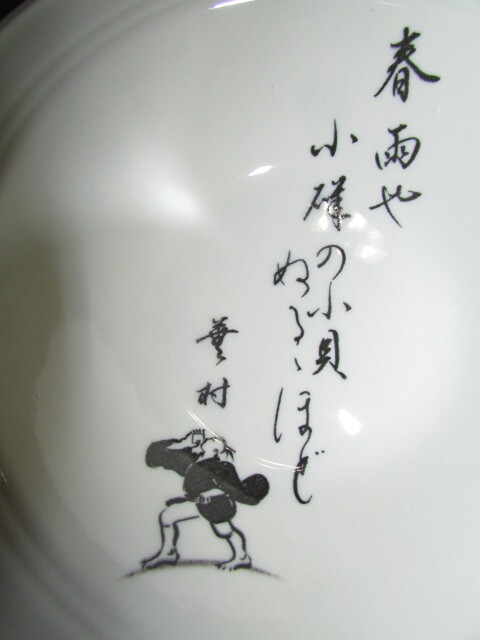 春雨や
小磯の小貝
ぬるゝほど
蕪村